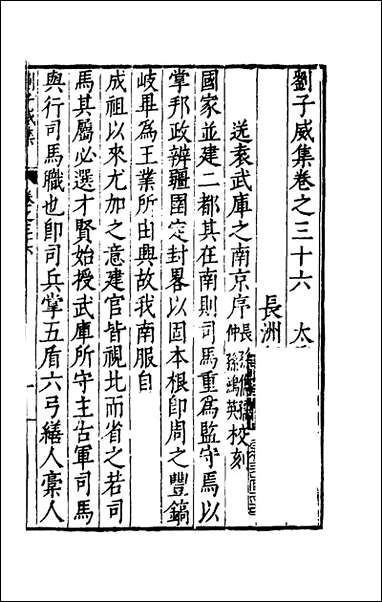 劉子威集卷之三十六 太
長洲
送袁武庫之南京序 長 仲孫鴻英校刻
國家並建二都其在南則司馬重為監守焉以
掌邦政辨疆圉定封畧以固本根卽周之豐鎬
岐畢為王業所由興故我南服自
成祖以來尤加之意建官皆視北而省之若司
馬其屬必選才賢始授武庫所守主古軍司馬
與行司馬職也卽司兵掌五盾六弓繕人稾人